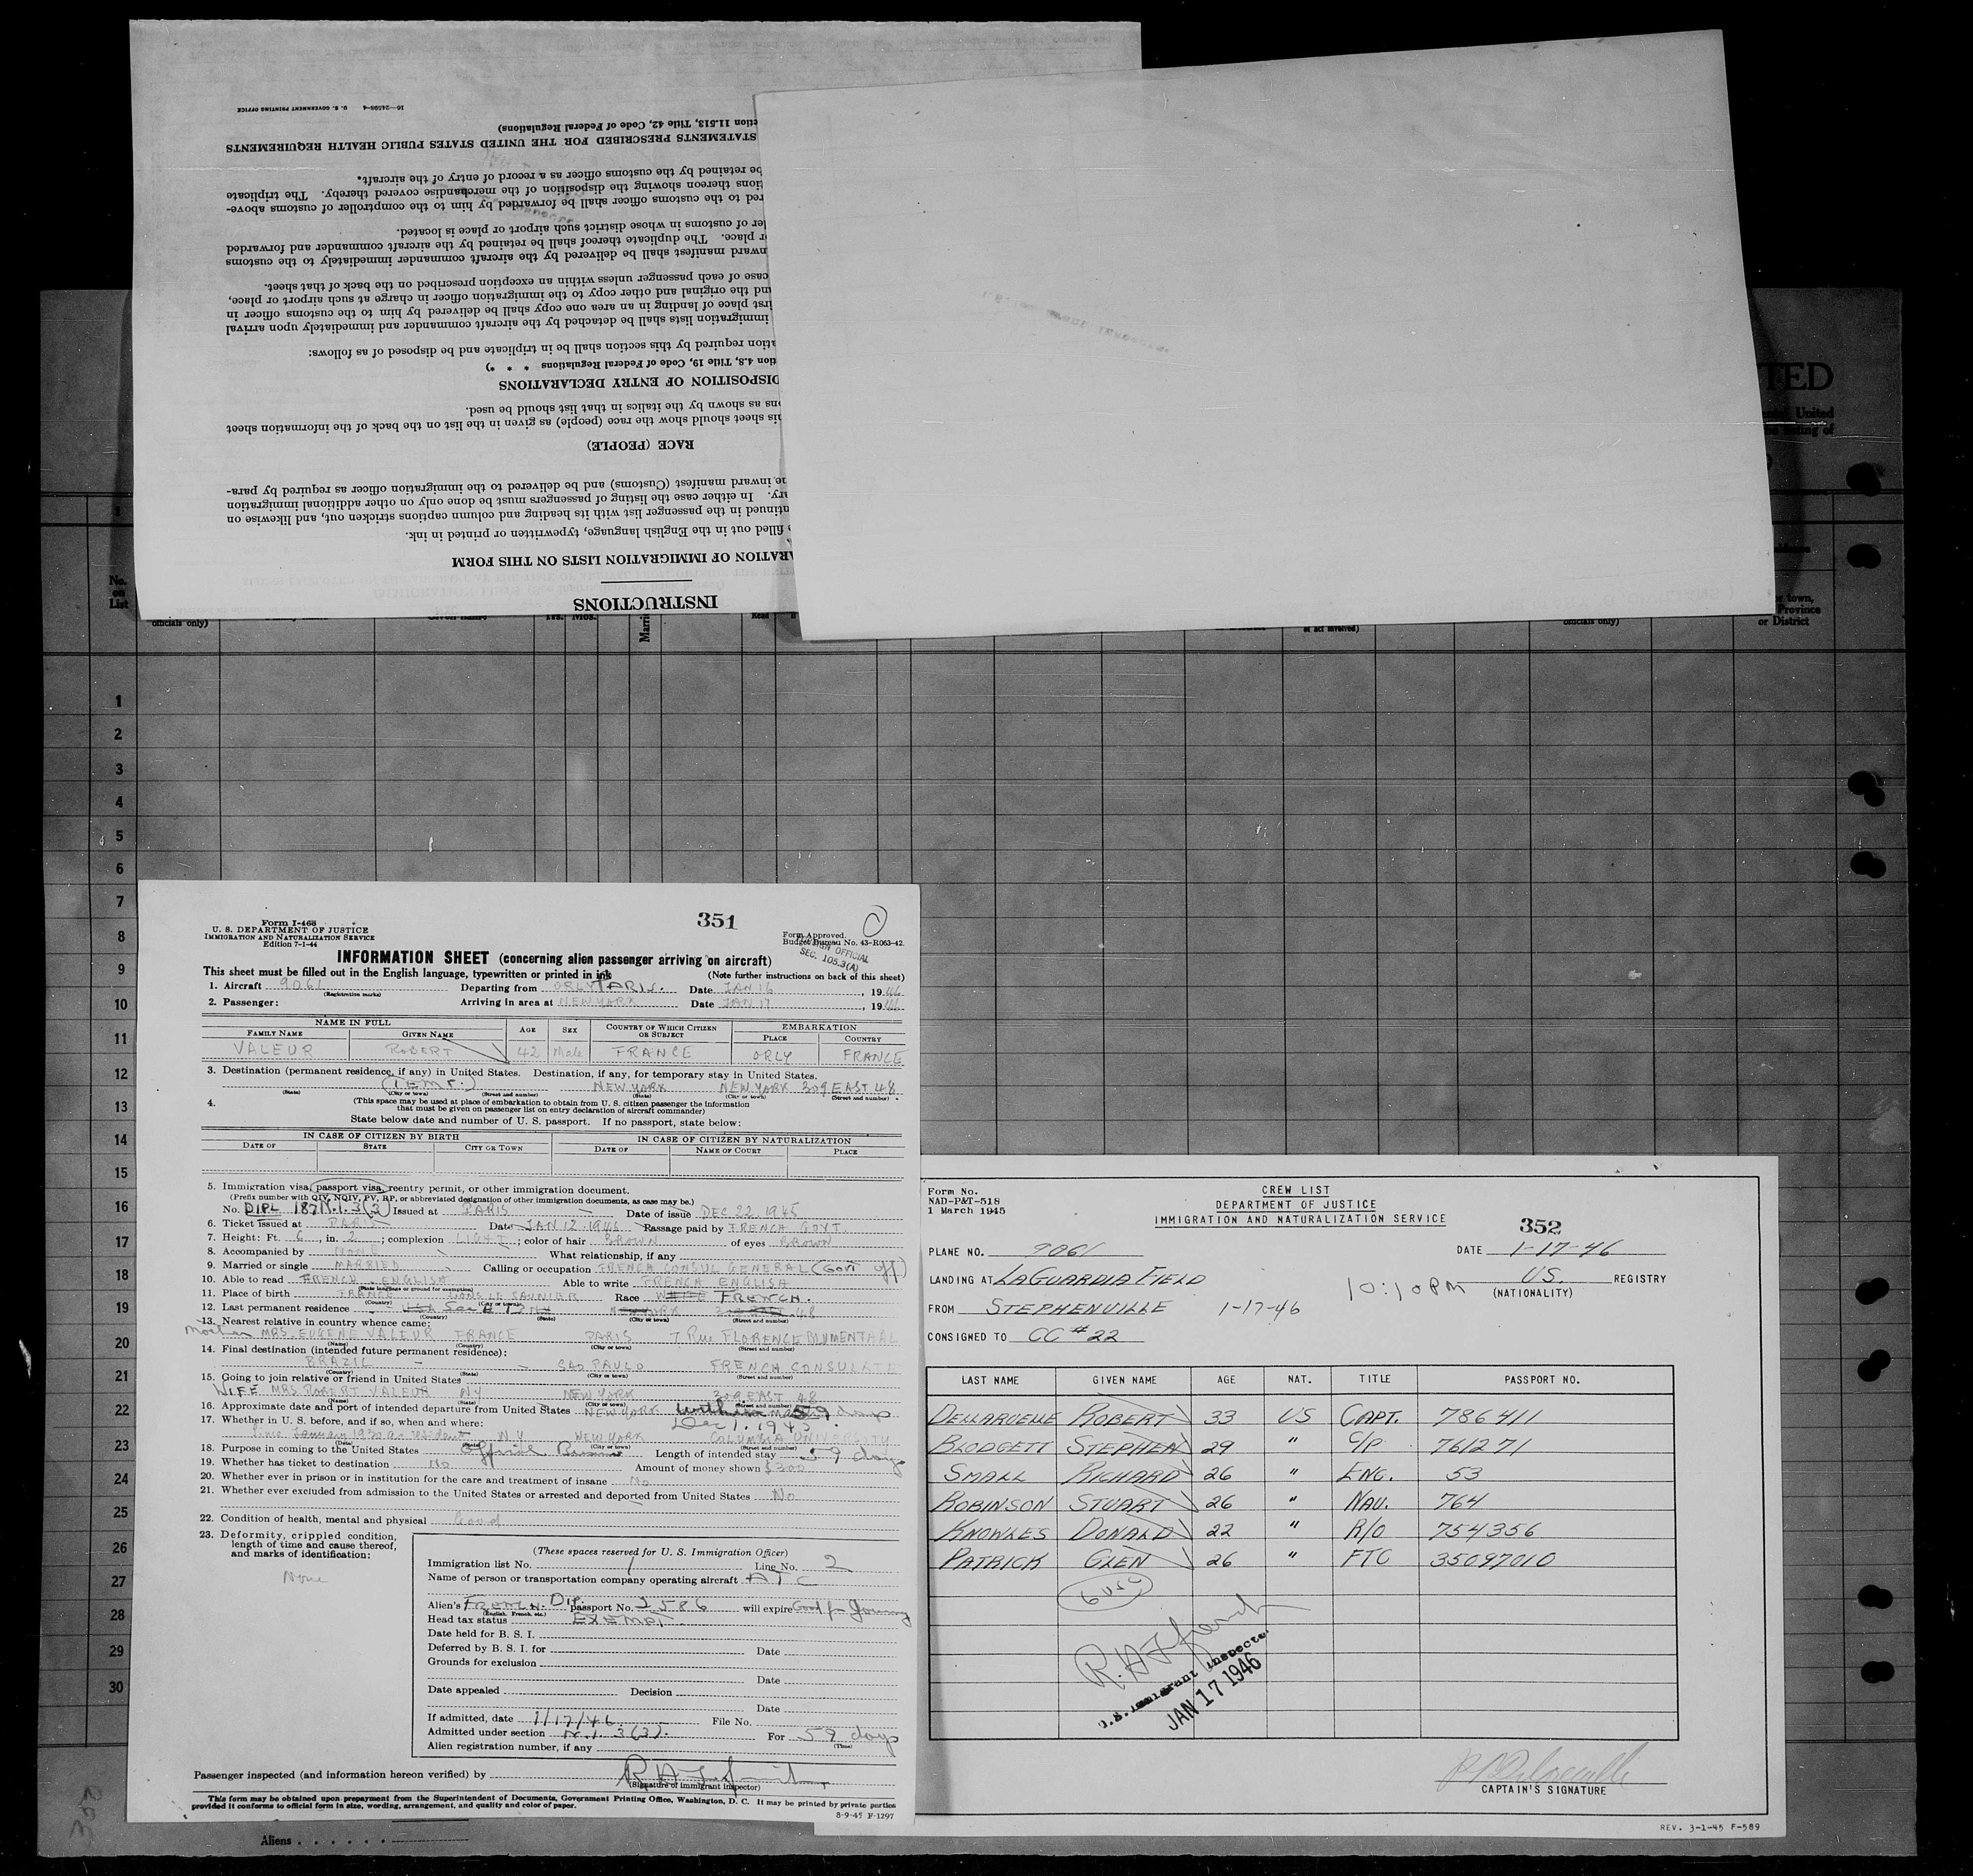 16—24598-4 U. S. GOVERNMENT PRINTING OFFICE
ction 11.513, Title 42, Code of Federal Regulations)
STATEMENTS PRESCRIBED FOR THE UNITED STATES PUBLIC HEALTH REQUIREMENTS
be retained by the customs officer as a record of entry of the aircraft.
tions thereon showing the disposition of the merchandise covered thereby. The triplicate
red to the customs officer shall be forwarded by him to the comptroller of customs above-
ler of customs in whose district such airport or place is located.
r place. The duplicate thereof shall be retained by the aircraft commander and forwarded
nward manifest shall be delivered by the aircraft commander immediately to the customs
case of each passenger unless within an exception prescribed on the back of that sheet.
nd the original and other copy to the immigration officer in charge at such airport or place,
rst place of landing in an area one copy shall be delivered by him to the customs officer in
immigration lists shall be detached by the aircraft commander and immediately upon arrival
ation required by this section shall be in triplicate and be disposed of as follows:
tion 4.8, Title 19, Code of Federal Regulations * * *)
DISPOSITION OF ENTRY DECLARATIONS
ons as shown by the italics in that list should be used.
his sheet should show the race (people) as given in the list on the back of the information sheet
RACE (PEOPLE)
he inward manifest (Customs) and be delivered to the immigration officer as required by para-
ary. In either case the listing of passengers must be done only on other additional immigration
ntinued in the passenger list with its heading and column captions stricken out, and likewise on
filled out in the English language, typewritten or printed in ink.
ARATION OF IMMIGRATION LISTS ON THIS FORM
INSTRUCTIONS
TED
United
No. on List
officials only)
Yrs. Mos.
Read
officials only)
or town,
Province
or District
1
2
3
4
5
6
7
8
9
10
11
12
13
14
15
16
17
18
19
20
21
22
23
24
25
26
27
28
29
30
Aliens
303
351
Form I-466
U. S. DEPARTMENT OF JUSTICE
IMMIGRATION AND NATURALIZATION SERVICE
Edition 7-1-44
Form Approved.
Budget Bureau No. 43-R063-42.
OFFICIAL
SEC. 105.3(A)
INFORMATION SHEET (concerning alien passenger arriving on aircraft)
This sheet must be filled out in the English language, typewritten or printed in ink (Note further instructions on back of this sheet)
1. Aircraft 9061 Departing from ORLY PARIS. Date JAN 16, 1946
(Registration marks)
2. Passenger: Arriving in area at NEW YORK Date JAN 17, 1946
NAME IN FULL AGE SEX COUNTRY OF WHICH CITIZEN OR SUBJECT EMBARKATION
FAMILY NAME GIVEN NAME PLACE COUNTRY
VALEUR ROBERT 42 Male FRANCE ORLY FRANCE
3. Destination (permanent residence, if any) in United States. Destination, if any, for temporary stay in United States.
(TEMP.) NEW YORK NEW YORK 309 EAST 48
(State) (City or town) (Street and number) (State) (City or town) (Street and number)
4. (This space may be used at place of embarkation to obtain from U. S. citizen passenger the information
that must be given on passenger list on entry declaration of aircraft commander)
State below date and number of U. S. passport. If no passport, state below:
IN CASE OF CITIZEN BY BIRTH IN CASE OF CITIZEN BY NATURALIZATION
DATE OF STATE CITY OR TOWN DATE OF NAME OF COURT PLACE
5. Immigration visa, passport visa, reentry permit, or other immigration document.
(Prefix number with QIV, NQIV, PV, RP, or abbreviated designation of other immigration documents, as case may be.)
No. DIPL 187 N.I. 3(3) Issued at PARIS Date of issue DEC 22. 1945
6. Ticket issued at PARIS Date JAN 12. 1946 Passage paid by FRENCH GOVT.
7. Height: Ft. 6, in. 2; complexion LIGHT; color of hair BROWN of eyes BROWN
8. Accompanied by NONE What relationship, if any
9. Married or single MARRIED Calling or occupation FRENCH CONSUL GENERAL (Govt off)
10. Able to read FRENCH. ENGLISH Able to write FRENCH ENGLISH
(State language or ground for exemption)
11. Place of birth FRANCE LONS LE SAUNIER Race WHITE FRENCH.
(Country) (City or town)
12. Last permanent residence USA See # 17 NY NEW YORK 309 EAST 48
(Country) (State) (City or town) (Street and number)
13. Nearest relative in country whence came:
Mother MRS. EUGENE VALEUR FRANCE PARIS 7 Rue FLORENCE BLUMENTHAL
(Name) (Country) (City or town) (Street and number)
14. Final destination (intended future permanent residence):
BRAZIL SAO PAULO FRENCH CONSULATE
(Country) (State) (City or town) (Street and number)
15. Going to join relative or friend in United States
WIFE MRS ROBERT VALEUR NY NEW YORK 309 EAST 48
(Name) (State) (City or town) (Street and number)
16. Approximate date and port of intended departure from United States NEW YORK within 59 days
17. Whether in U. S. before, and if so, when and where: Dec 1, 1945
Since January 1930 as resident N.Y NEW YORK COLUMBIA UNIVERSITY
(Date) (State) (City or town) (Street and number)
18. Purpose in coming to the United States Official Business Length of intended stay 59 days
19. Whether has ticket to destination No Amount of money shown $300
20. Whether ever in prison or in institution for the care and treatment of insane No
21. Whether ever excluded from admission to the United States or arrested and deported from United States No
22. Condition of health, mental and physical Good
23. Deformity, crippled condition, length of time and cause thereof, and marks of identification:
None
(These spaces reserved for U. S. Immigration Officer)
Immigration list No. 1 Line No. 2
Name of person or transportation company operating aircraft ATC
Alien's French. Dip. passport No. 2586 will expire Good for Journey
(English, French, etc.)
Head tax status EXEMPT
Date held for B. S. I.
Deferred by B. S. I. for Date
Grounds for exclusion
Date
Date appealed Decision
Date
If admitted, date 1/17/46 File No.
Admitted under section N.I. 3(3). For 59 days
(Time)
Alien registration number, if any
Passenger inspected (and information hereon verified) by
(Signature of immigrant inspector)
This form may be obtained upon prepayment from the Superintendent of Documents, Government Printing Office, Washington, D. C. It may be printed by private parties
provided it conforms to official form in size, wording, arrangement, and quality and color of paper.
8-9-45 F-1297
Form No.
NAD-P&T-518
1 March 1945
CREW LIST
DEPARTMENT OF JUSTICE
IMMIGRATION AND NATURALIZATION SERVICE
352
PLANE NO. 9061 DATE 1-17-46
LANDING AT LAGUARDIA FIELD 10:10 PM US. REGISTRY
(NATIONALITY)
FROM STEPHENVILLE 1-17-46
CONSIGNED TO CC #22
LAST NAME GIVEN NAME AGE NAT. TITLE PASSPORT NO.
DELLARUELLE ROBERT 33 US CAPT. 786411
BLODGETT STEPHEN 29 " C/P 761271
SMALL RICHARD 26 " ENG. 53
ROBINSON STUART 26 " NAV. 764
KNOWLES DONALD 22 " R/O 754356
PATRICK GLEN 26 " FTC 35097010
6 USC
U.S. Immigrant Inspector
JAN 17 1946
CAPTAIN'S SIGNATURE
REV. 3-1-45 F-589